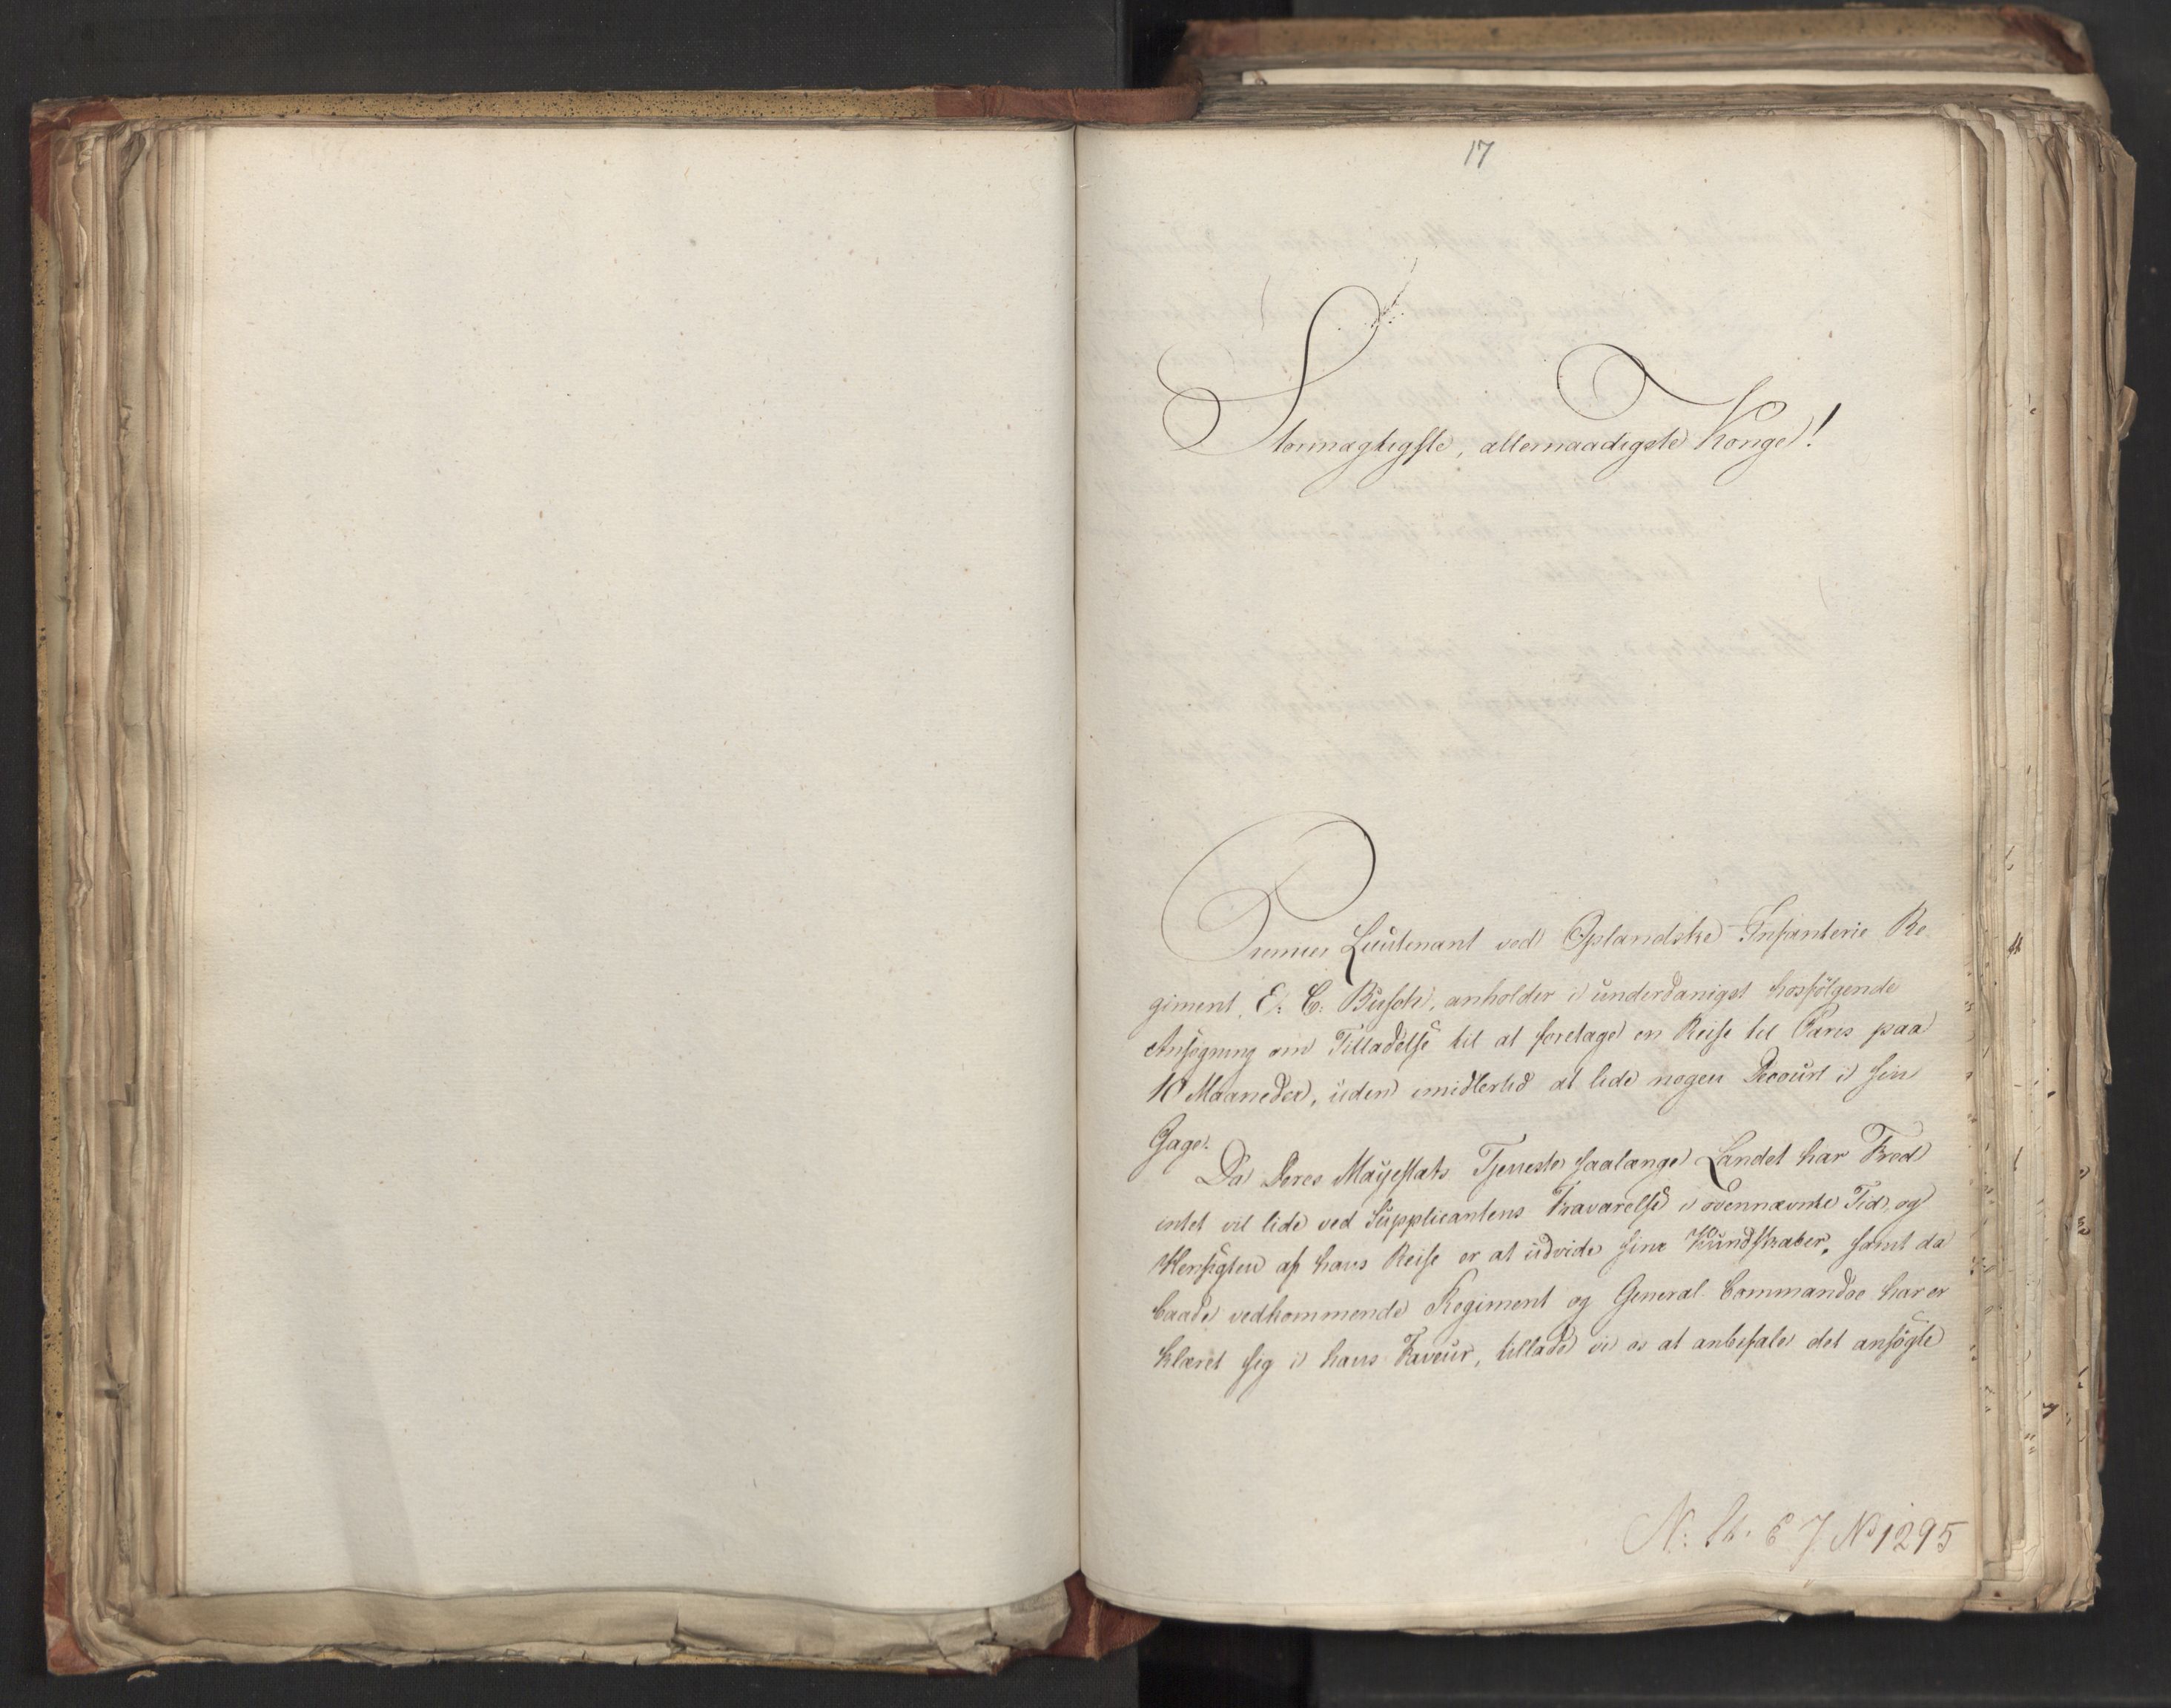 17
Stormægtigste, allernaadigste Konge!
Premier Lieutenant ved Oplandske Infanterie Re
giment, E: C: Busch, anholder i underdanigst hosfölgende
Ansögning om Tilladelse til at foretage en Reise til Paris paa
10 Maaneder, uden imidlertid at lide nogen Decourt i sin
Gage.
Da Deres Majestæts Tjeneste saalænge Landet har Fred
intet vil lide ved Supplicantens Fraværelse i ovennævnte Tid, og
Hensigten af hans Reise er at udvide sine Kundskaber, samt da
baade vedkommende Regiment og General Commandoe har er
klæret sig i hans Faveur, tillade vi os at anbefale det ansögte
No 1295